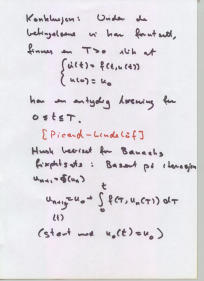 Konklusjon: Under de
betingelsene vi har fundnet,
finnes en T>0 slik at
{ u̇(t) = f(t,u(t))
{ u(0) = u₀
har en entydig løsning for
0 ≤ t ≤ T.
[Picard-Lindelöf]
Husk beviset for Banachs
fixpktsats: Basert på iterasjon
uₙ₊₁ = Φ(uₙ)
uₙ₊₁ = u₀ + ∫₀ᵗ f(τ, uₙ(τ)) dτ
(t)
(start med u₀(t) = u₀)